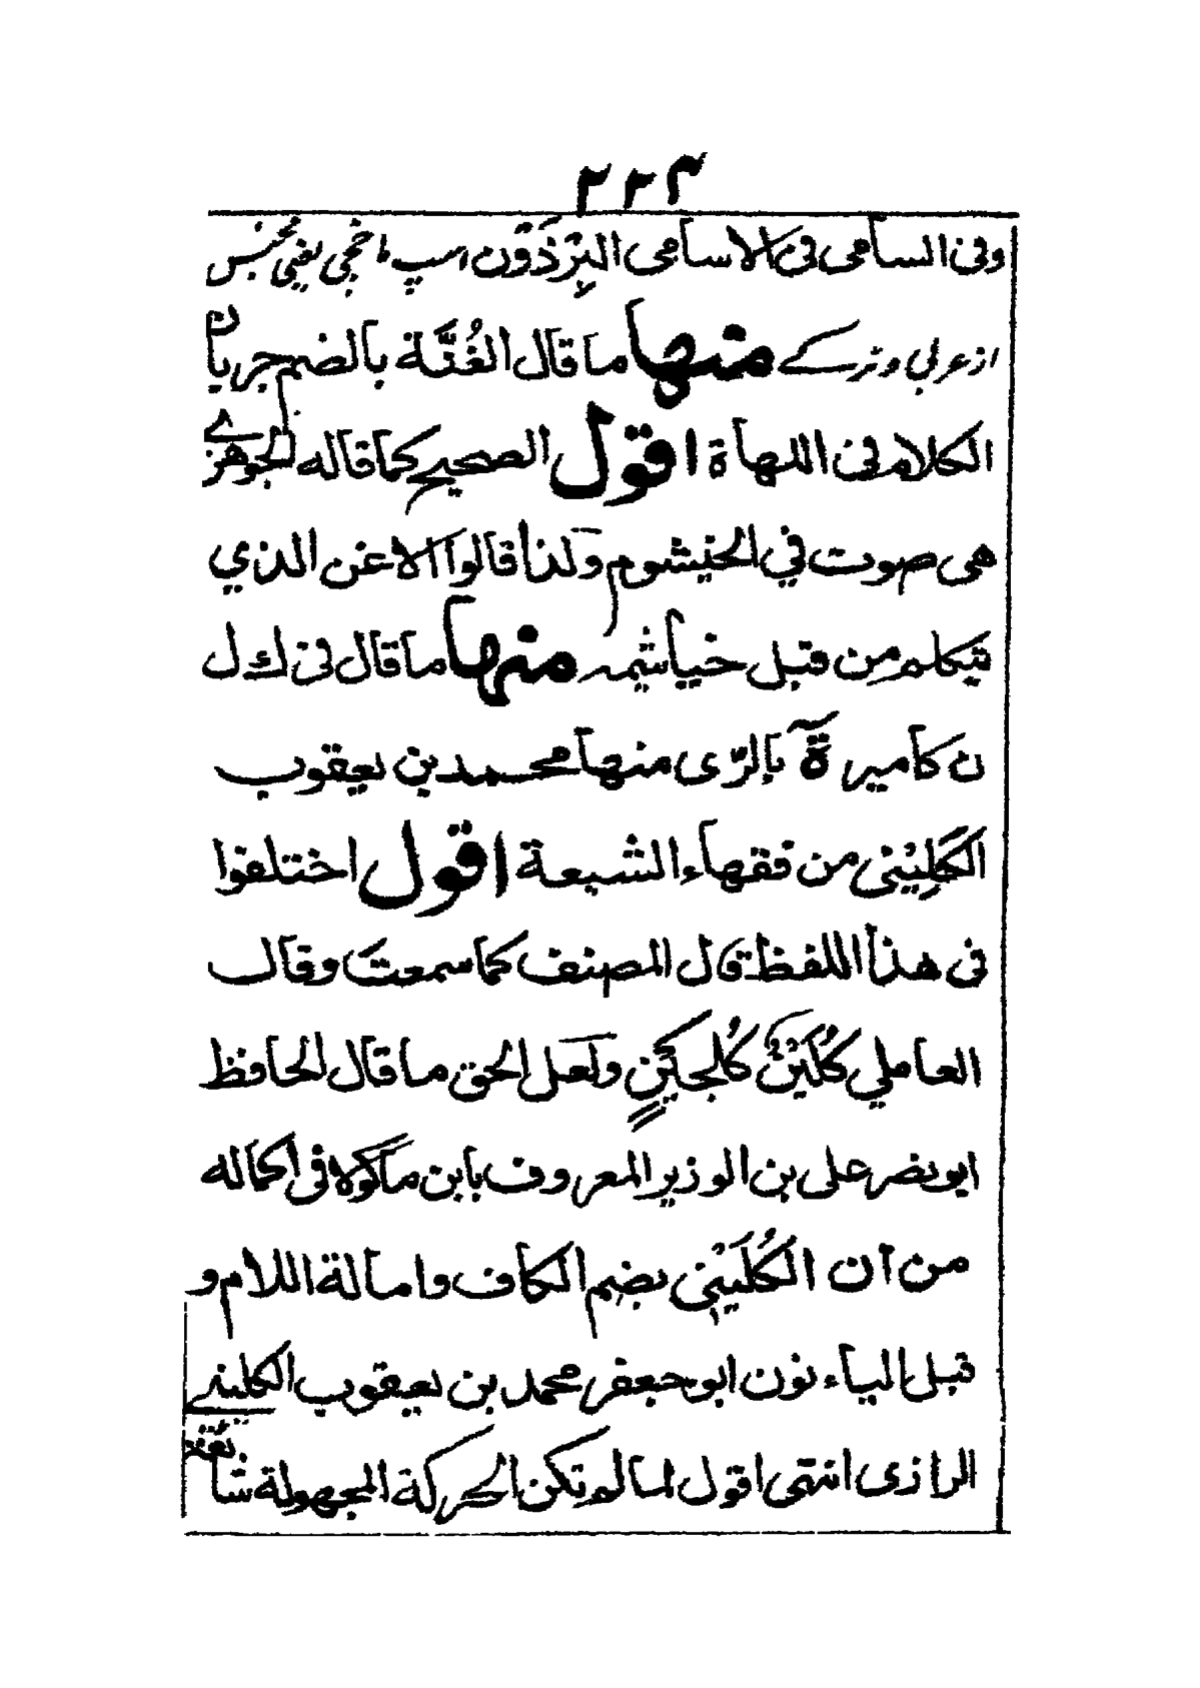 ٢٢٣
وفى السامى فى الاسامى البِرْذَوْن اسپ
از عربي و تركے منها ما قال الغُنَّة بالضم جريان
الكلام فى اللهاة اقول الصحيح كما قاله الجوهرے
هى صوت في الخيشوم ولذا قالوا الاغن الذي
يتكلم من قبل خياشيمه منها ما قال فى ك ل
ن كامير ة بالرّى منها محمد بن يعقوب
الكَلِيْنى من فقهاء الشيعة اقول اختلفوا
فى هذا اللفظ قال المصنف كما سمعت وقال
العاملي كُلَيْن كُلجين ولعل الحق ما قال الحافظ
ابو نصر على بن الوزير المعروف بابن ماكولا فى اكماله
من ان الكُلَيْنى بضم الكاف وامالة اللام و
قبل الياء نون ابو جعفر محمد بن يعقوب الكلينے
الرازى انتهى اقول لما لم تكن الحركة المجهولة